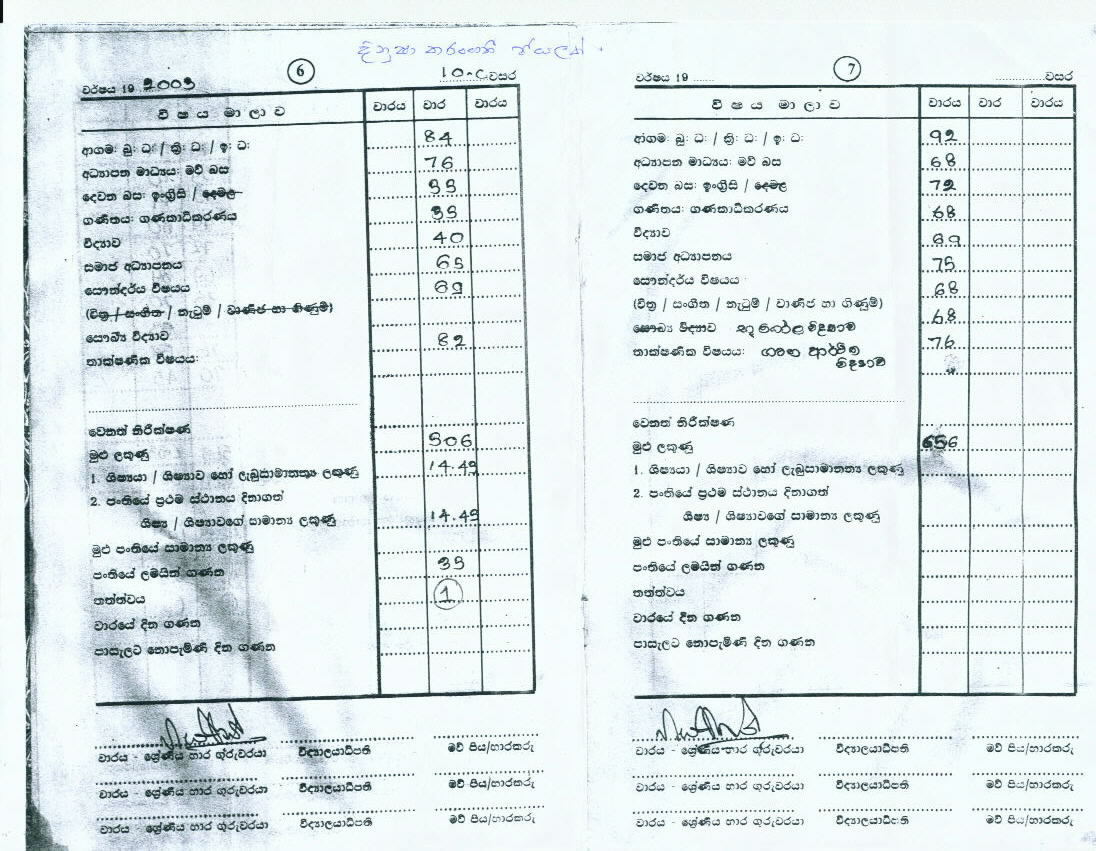 දිනුෂා තරංගනී
6
වර්ෂය 19 2003 10-C වසර
විෂය මාලාව වාරය වාර වාරය
ආගම: බු: ධ: / ක්‍රි: ධ: / ඉ: ධ: 84
අධ්‍යාපන මාධ්‍යය: මව් බස 76
දෙවන බස: ඉංග්‍රීසි / දෙමළ 33
ගණිතය: ගණකාධිකරණය 33
විද්‍යාව 40
සමාජ අධ්‍යාපනය 63
සෞන්දර්ය විෂයය 69
(චිත්‍ර / සංගීත / නැටුම් / වාණිජ හා ගිණුම්)
සෞඛ්‍ය විද්‍යාව 82
තාක්ෂණික විෂයය:
වෙනත් නිරීක්ෂණ
මුළු ලකුණු 506
1. ශිෂ්‍යයා / ශිෂ්‍යාව හෝ ලැබූසාමාන්‍ය ලකුණු 14.49
2. පංතියේ ප්‍රථම ස්ථානය දිනාගත්
ශිෂ්‍ය / ශිෂ්‍යාවගේ සාමාන්‍ය ලකුණු 14.49
මුළු පංතියේ සාමාන්‍ය ලකුණු
පංතියේ ලමයින් ගණන 35
තත්ත්වය 1
වාරයේ දින ගණන
පාසැලට නොපැමිණි දින ගණන
වාරය - ශ්‍රේණිය භාර ගුරුවරයා විද්‍යාලයාධිපති මව් පිය/භාරකරු
වාරය - ශ්‍රේණිය භාර ගුරුවරයා විද්‍යාලයාධිපති මව් පිය/භාරකරු
වාරය - ශ්‍රේණිය භාර ගුරුවරයා විද්‍යාලයාධිපති මව් පිය/භාරකරු
7
වර්ෂය 19 ....... වසර
විෂය මාලාව වාරය වාර වාරය
ආගම: බු: ධ: / ක්‍රි: ධ: / ඉ: ධ: 92
අධ්‍යාපන මාධ්‍යය: මව් බස 68
දෙවන බස: ඉංග්‍රීසි / දෙමළ 72
ගණිතය: ගණකාධිකරණය 68
විද්‍යාව 69
සමාජ අධ්‍යාපනය 75
සෞන්දර්ය විෂයය 68
(චිත්‍ර / සංගීත / නැටුම් / වාණිජ හා ගිණුම්) 68
සෞඛ්‍ය විද්‍යාව භූගෝල විද්‍යාව
තාක්ෂණික විෂයය: ගෘහ ආර්ථික විද්‍යාව 76
වෙනත් නිරීක්ෂණ
මුළු ලකුණු 656
1. ශිෂ්‍යයා / ශිෂ්‍යාව හෝ ලැබූසාමාන්‍ය ලකුණු
2. පංතියේ ප්‍රථම ස්ථානය දිනාගත්
ශිෂ්‍ය / ශිෂ්‍යාවගේ සාමාන්‍ය ලකුණු
මුළු පංතියේ සාමාන්‍ය ලකුණු
පංතියේ ලමයින් ගණන
තත්ත්වය
වාරයේ දින ගණන
පාසැලට නොපැමිණි දින ගණන
වාරය - ශ්‍රේණිය භාර ගුරුවරයා විද්‍යාලයාධිපති මව් පිය/භාරකරු
වාරය - ශ්‍රේණිය භාර ගුරුවරයා විද්‍යාලයාධිපති මව් පිය/භාරකරු
වාරය - ශ්‍රේණිය භාර ගුරුවරයා විද්‍යාලයාධිපති මව් පිය/භාරකරු